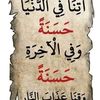 آتِنَا فِي الدُّنْيَا
حَسَنَةً
وَفِي الْآخِرَةِ
حَسَنَةً
وَقِنَا عَذَابَ النَّارِ